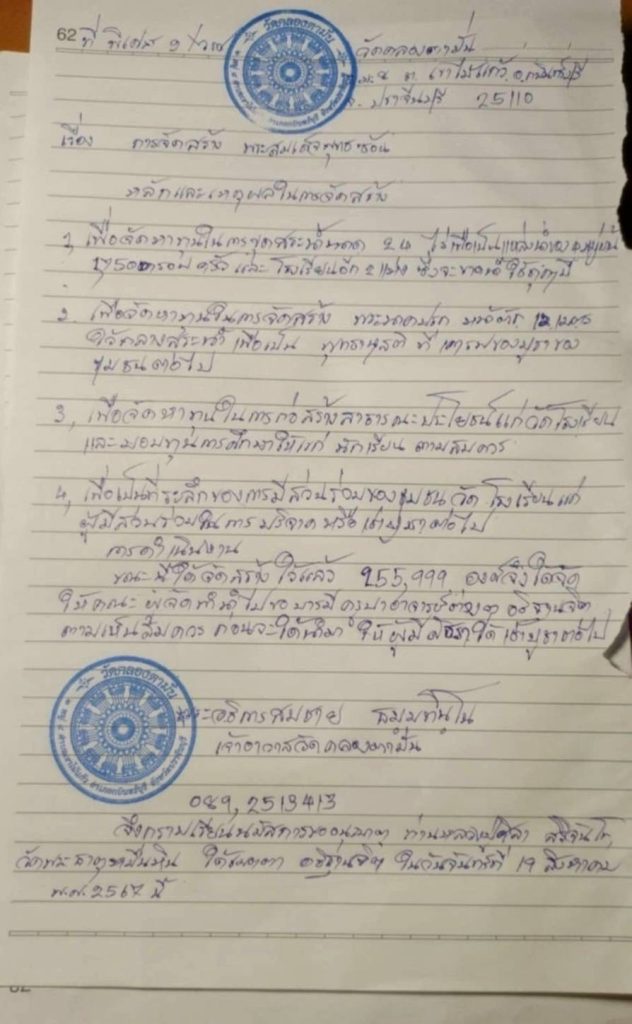 62 ที่ พิเศษ
วัดคลองตามั่น
ต. เขาไม้แก้ว อ.กบินทร์บุรี
จ. ปราจีนบุรี 25110
เรื่อง การจัดสร้าง พระสมเด็จพุทธซ้อน
หลักและเหตุผลในการจัดสร้าง
1, เพื่อจัดหาทุนในการขุดสระน้ำขนาด ไร่ เพื่อเป็นแหล่งน้ำของ
ครอบครัว และ โรงเรียนอีก 2 แห่ง ซึ่งจะขาดน้ำใช้ทุกๆปี
2. เพื่อจัดหาทุนในการจัดสร้าง พระนาคปรก หน้าตัก 12 เมตร
ไว้กลางสระน้ำ เพื่อเป็น พุทธานุสติ ที่ เคารพของบูชาของ
ชุมชนต่อไป
3, เพื่อจัดหาทุนในการก่อสร้างสาธารณะประโยชน์แก่วัดโรงเรียน
และมอบทุนการศึกษาให้แก่ นักเรียน ตามสมควร
4, เพื่อเป็นที่ระลึกของการมีส่วนร่วมของชุมชน วัด โรงเรียนแก่
ผู้มีส่วนร่วมในการ บริจาค หรือ เช่าบูชาต่อไป
การดำเนินงาน
ขณะนี้ได้จัดสร้าง ไว้แล้ว 255,999 องค์จึงได้จัด
ให้คณะ ผู้จัดทำนำไปขอบารมีครูบาอาจารย์ต่างๆ อธิษฐานจิต
ตามเห็นสมควร ก่อนจะได้นำมา ให้ผู้มีศรัทธาได้ เช่าบูชาต่อไป
วัดคลองตามั่น
พระอธิการสมชาย
เจ้าอาวาสวัดคลองตามั่น
089, 2513413
จึงกราบเรียนนมัสการขออนุญาต ท่านหลวงปู่ศิลา สิริจันโท
วัดพระธาตุหมื่นหิน ได้เมตตา อธิษฐานจิต ในวันจันทร์ที่ 19 สิงหาคม
พ.ศ. 2567 นี้